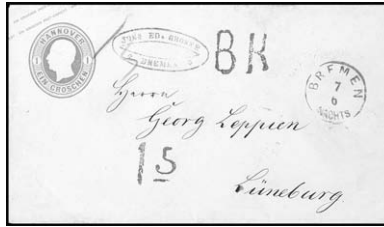 HANNOVER
1 1
EIN GROSCHEN
BREMEN
BK
BREMEN
7
6
NACHTS
Herrn
Georg Leppien
15
Lüneburg.